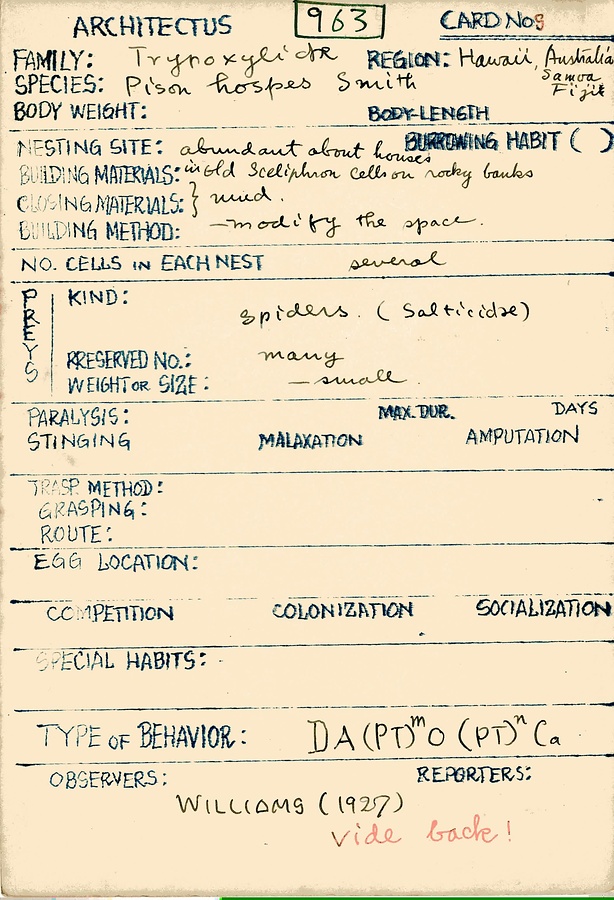 ARCHITECTUS 963 CARD NOS
FAMILY: Trypoxylidæ REGION: Hawaii, Australia
Samoa
Fiji
SPECIES: Pison hospes Smith
BODY WEIGHT: BODY-LENGTH
NESTING SITE: abundant about houses BURROWING HABIT ( )
BUILDING MATERIALS: in old Sceliphron cells on rocky banks
CLOSING MATERIALS: } mud.
BUILDING METHOD: — modify the space.
NO. CELLS IN EACH NEST several
PREYS
KIND: spiders. (Salticidæ)
PRESERVED NO.: many
WEIGHT OR SIZE: — small.
PARALYSIS: MAX. DUR. DAYS
STINGING MALAXATION AMPUTATION
TRASP. METHOD:
GRASPING:
ROUTE:
EGG LOCATION:
COMPETITION COLONIZATION SOCIALIZATION
SPECIAL HABITS:
TYPE OF BEHAVIOR: DA(PT)ᵐO(PT)ⁿCa
OBSERVERS: REPORTERS:
WILLIAMS (1927)
Vide back!